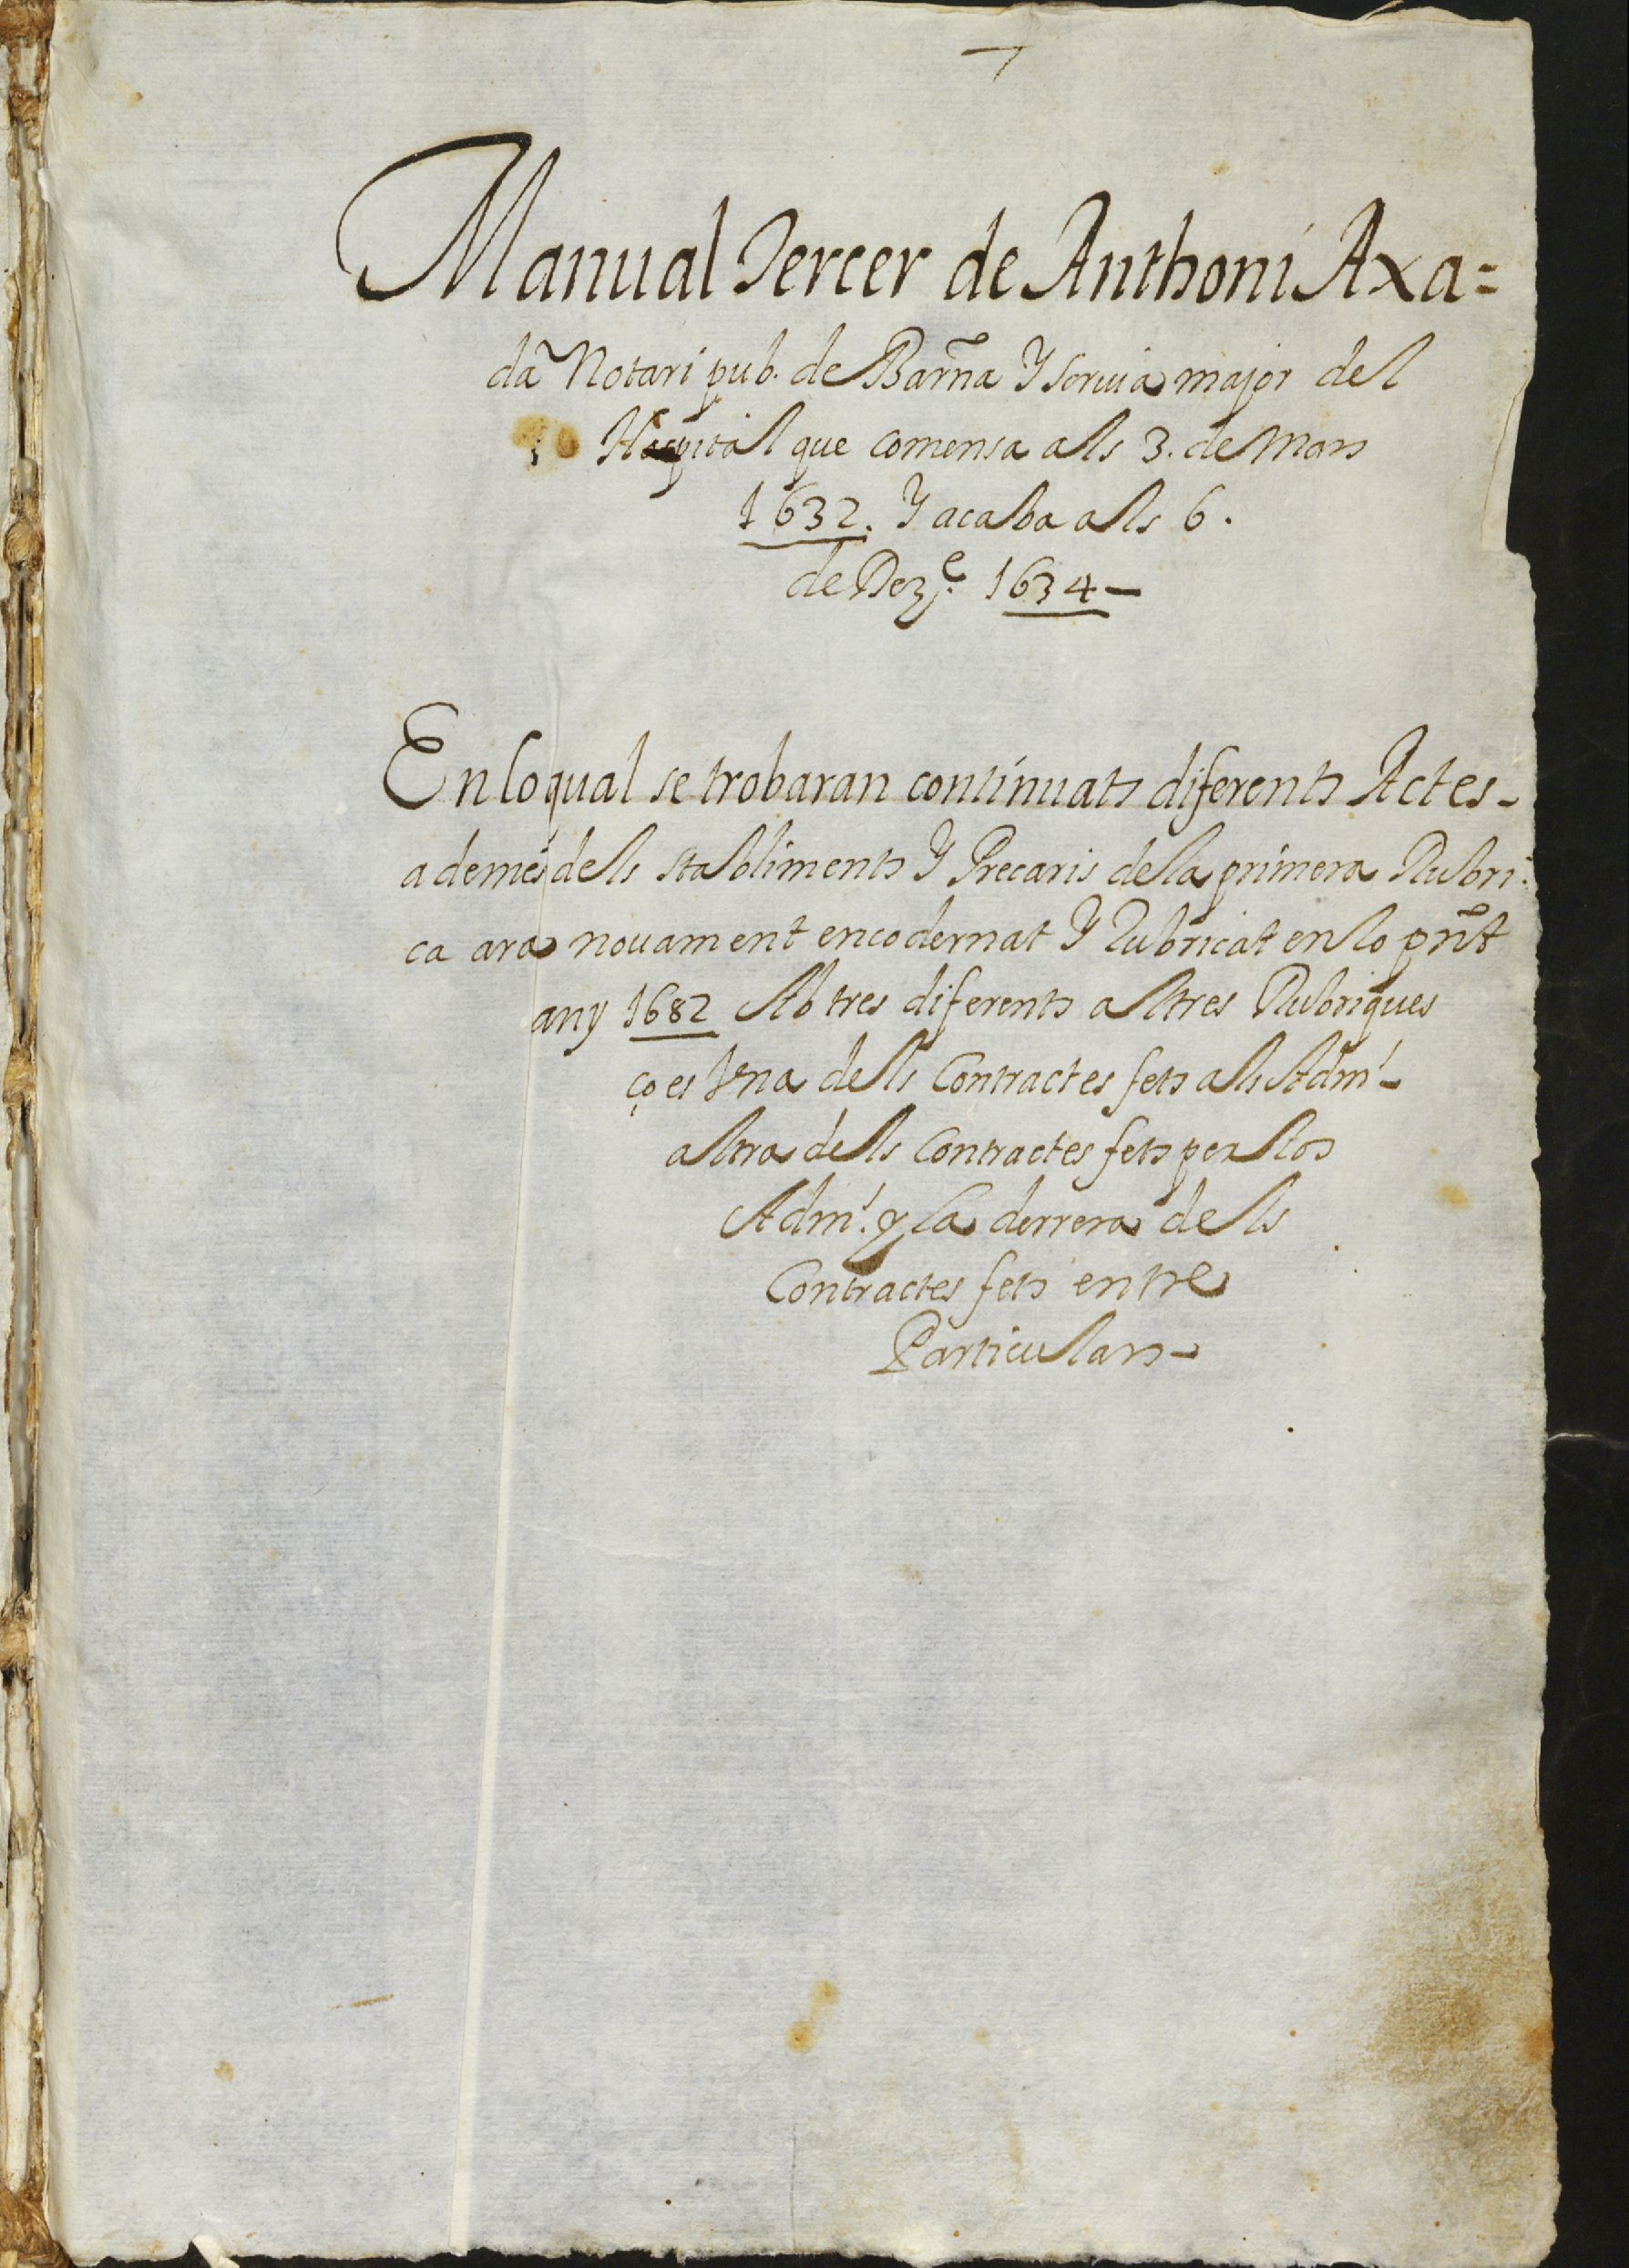 Manual Tercer de Anthoni Axa=
dã Notari pub. de Barña Y Scriuia major del
Hospital que comensa als 3. de Mars
1632. Y acaba als 6.
de Dez.e 1634 –
En lo qual se trobaran continuats diferents Actes -
ademes dels stabliments Y Precaris de la primera Rubri:
ca ara nouament encodernat Y Rubricat en lo pñt
any 1682 Ab tres diferents altres Rubriques
ço es Vna dels Contractes fets als Adm.ʳ -
altra dels Contractes fets per los
Adm.ʳ y la derrera dels
Contractes fets entre
Particulars -